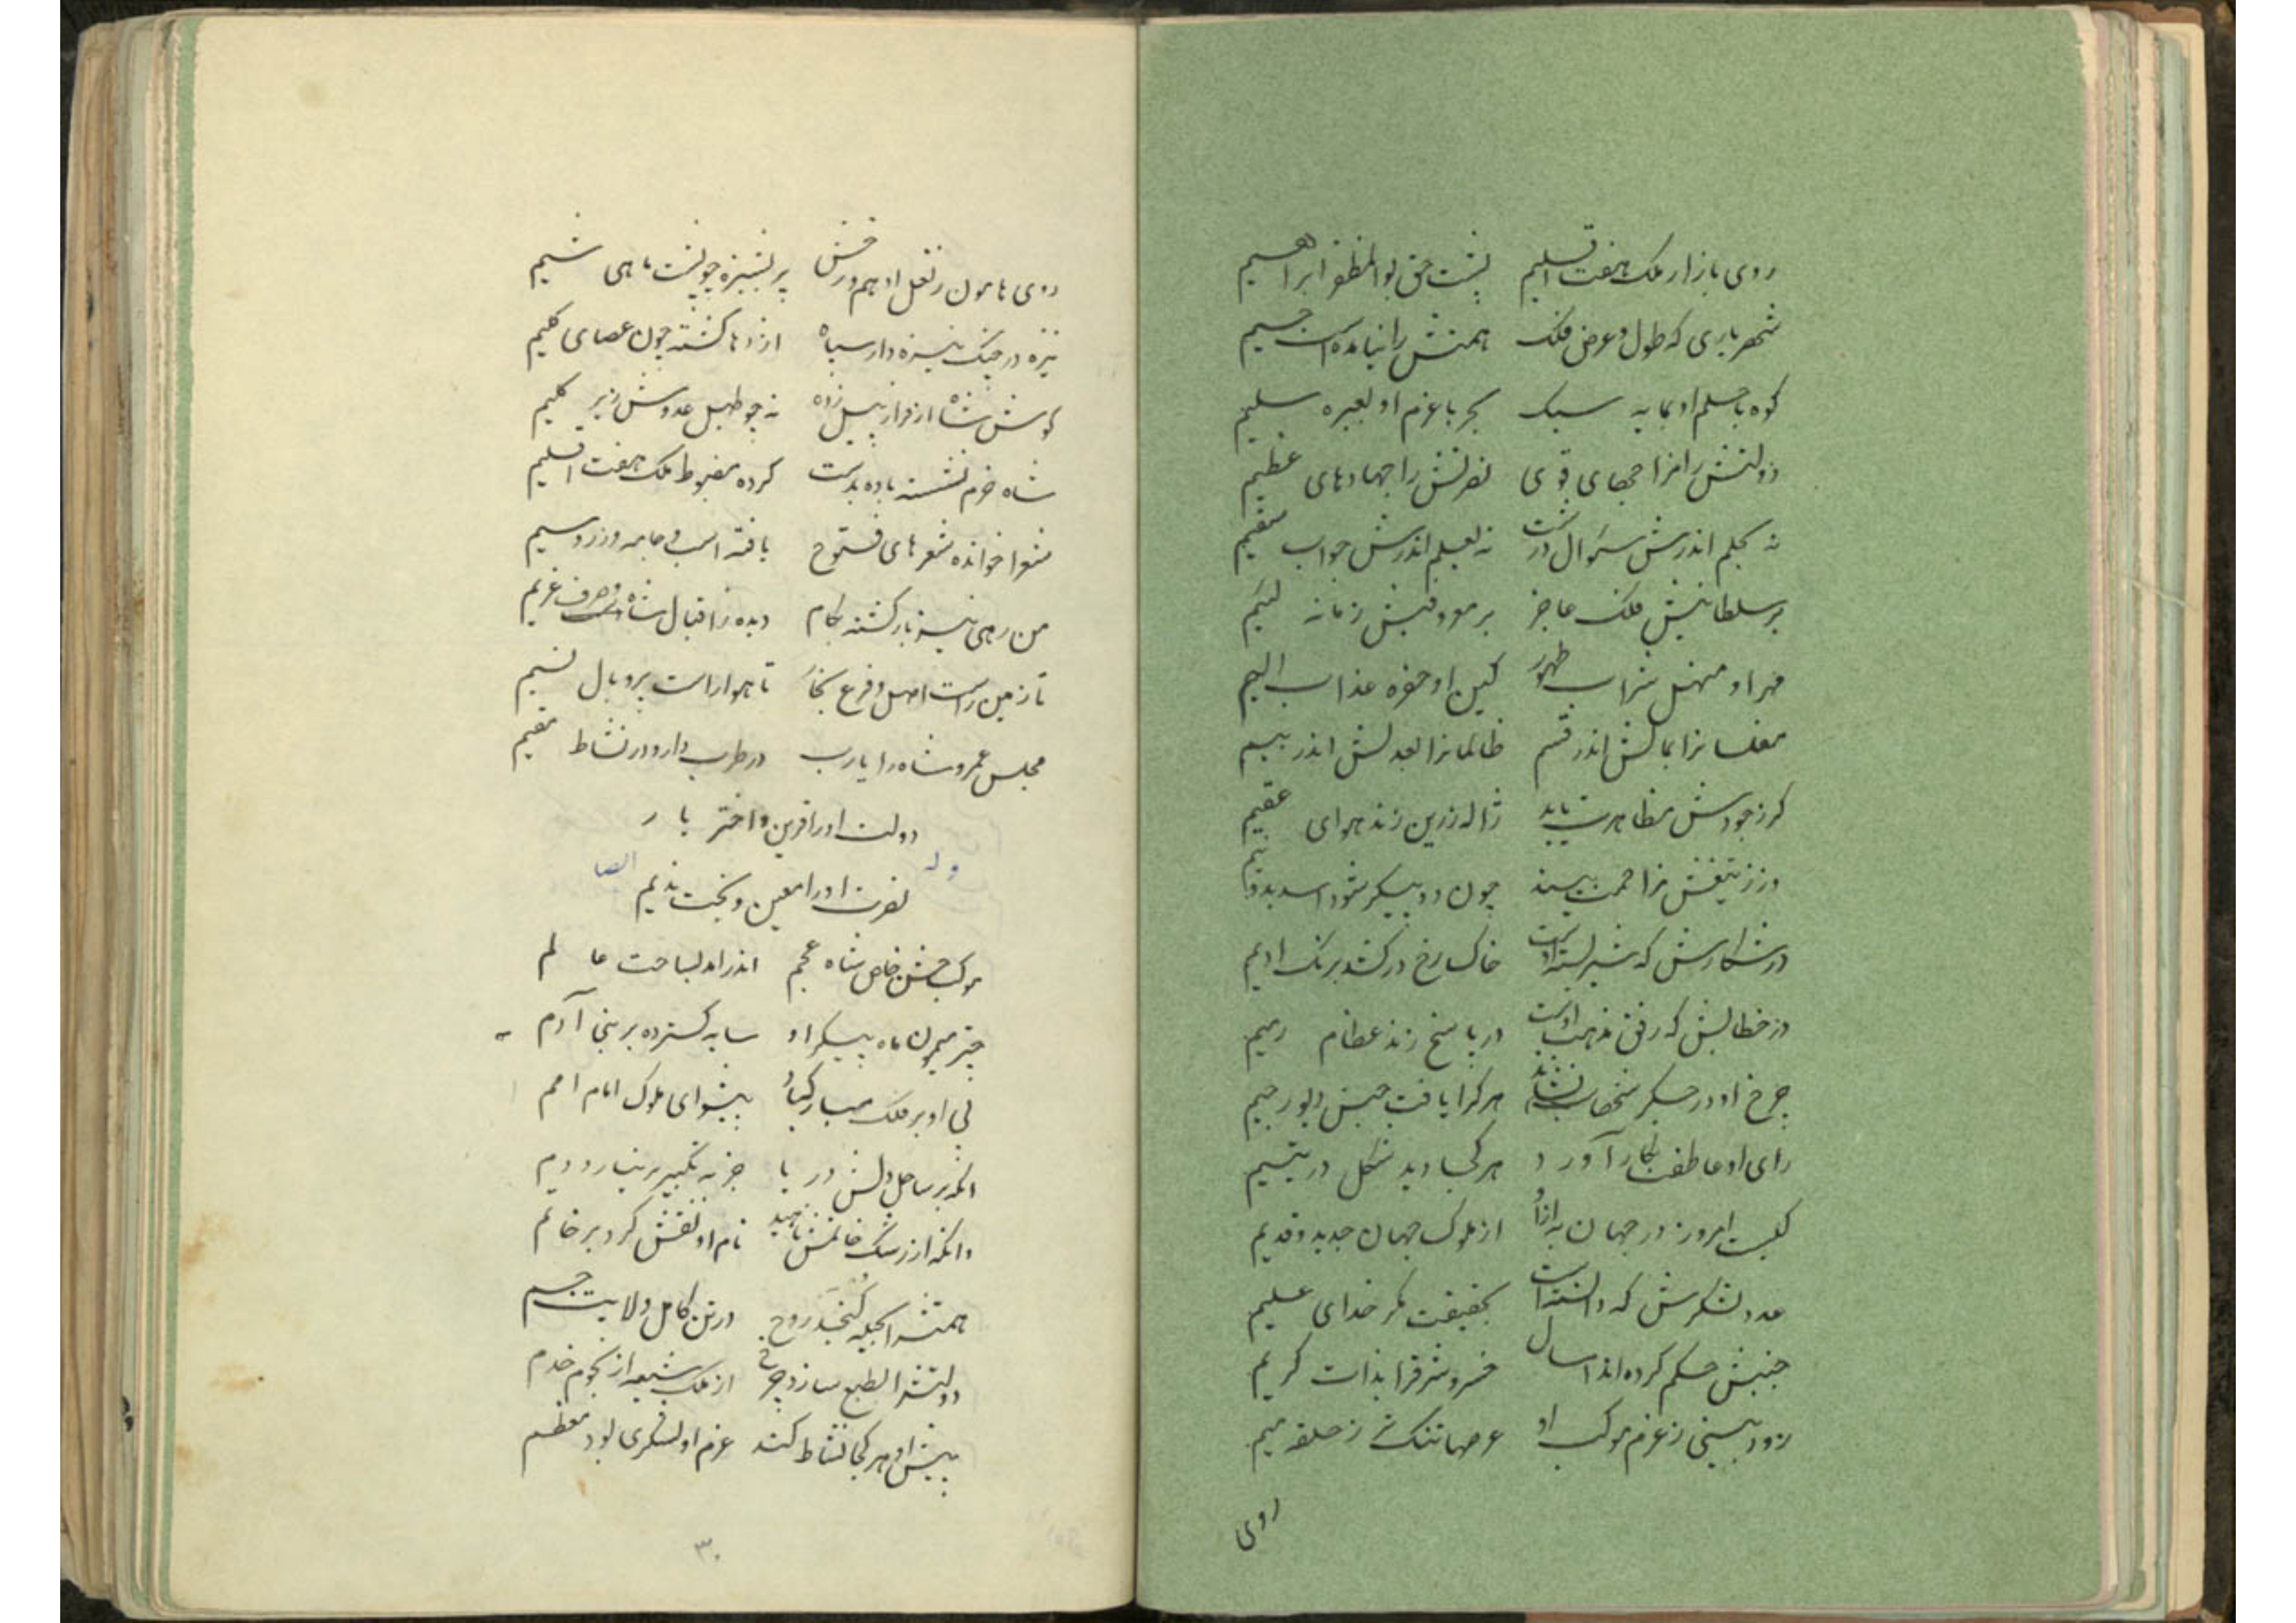 روی بازار ملک هفت اقلیم پشت حق بوالمظفر ابراهیم
شهریاری که طول و عرض فلک همتش را نیامده است جسیم
کوه با حلم او بمایه سبک بحر با عزم او بعبره سلیم
دولتش را مزاجهای قوی نصرتش را جهادهای عظیم
نه بحلم اندرش سئوال درشت نه بعلم اندرش جواب سقیم
بر سلطانیش فلک عاجز بر موقفیش زمانه لئیم
مهر او منهل شراب طهور کین او حفره عذاب الیم
مفلسانرا بمالش اندر قسم ظالمانرا بعدلش اندر بیم
گر ز جودش مظاهرت یابد ژاله زرین زند هوای عقیم
ور ز تیغش مزاحمت بیند چون دو پیکر شود اسد بدو نیم
در شکارش که شیر بسته اوست خاک رخ درکشد برنگ ادیم
در خطابش که رفق مذهب اوست در پاسخ زند عظام رمیم
چرخ او در جگر شهاب نشاند هر کرا یافت جنس دیو رجیم
رای او عاطفت بکار آورد هر کجا دید شکل در یتیم
کیست امروز در جهان به ازو از ملوک جهان جدید و قدیم
عدد لشکرش که دانسته است بحقیقت مگر خدای علیم
جنبش حکم کرده اند امسال خسرو شرق را بذات کریم
زود بینی ز عزم موکب او عرصها تنگ تر ز حلقه میم
روی
روی هامون ز نعل ادهم و رخش پر پشیزه چو پشت ماهی شیم
نیزه در جنگ نیزه دار سپاه اژدها گشته چون عصای کلیم
کوس شاه از فراز پیل زده نه چو طبل عدوش زیر گلیم
شاه خرم نشسته باده بدست کرده مضبوط ملک هفت اقلیم
شعرا خوانده شعرهای فتوح یافته اسب و جامه و زر و سیم
من رهی نیز بازگشته بکام دیده ز اقبال شاه صرف غریم
تا زمین راست اصل و فرع بخار تا هوا راست پر و بال نسیم
مجلس عمر و شاه را یارب در طرب دارد در نشاط مقیم
دولت او را قرین و اختر یار
نصرت او را معین و بخت ندیم
وله ایضا
موکب جشن خاص شاه عجم اندر آمد بساحت عالم
چتر میمون ماه پیکر او سایه گسترده بر بنی آدم
پی او بر فلک مبارکباد پیشوای ملوک امام امم
آنکه بر ساحل دلش دریا جز به تکبیر بر نیارد دم
وانکه از رشک خاتمش ناهید نام او نقش کرد بر خاتم
همتش را بحیله گنجد روح در تن کامل ولایت جسم
دولتش را بطبع سازد چرخ از ملک شیعه از نجوم خدم
پیش او هر کجا نشاط کند عزم او لشکری بود معظم
۳۰